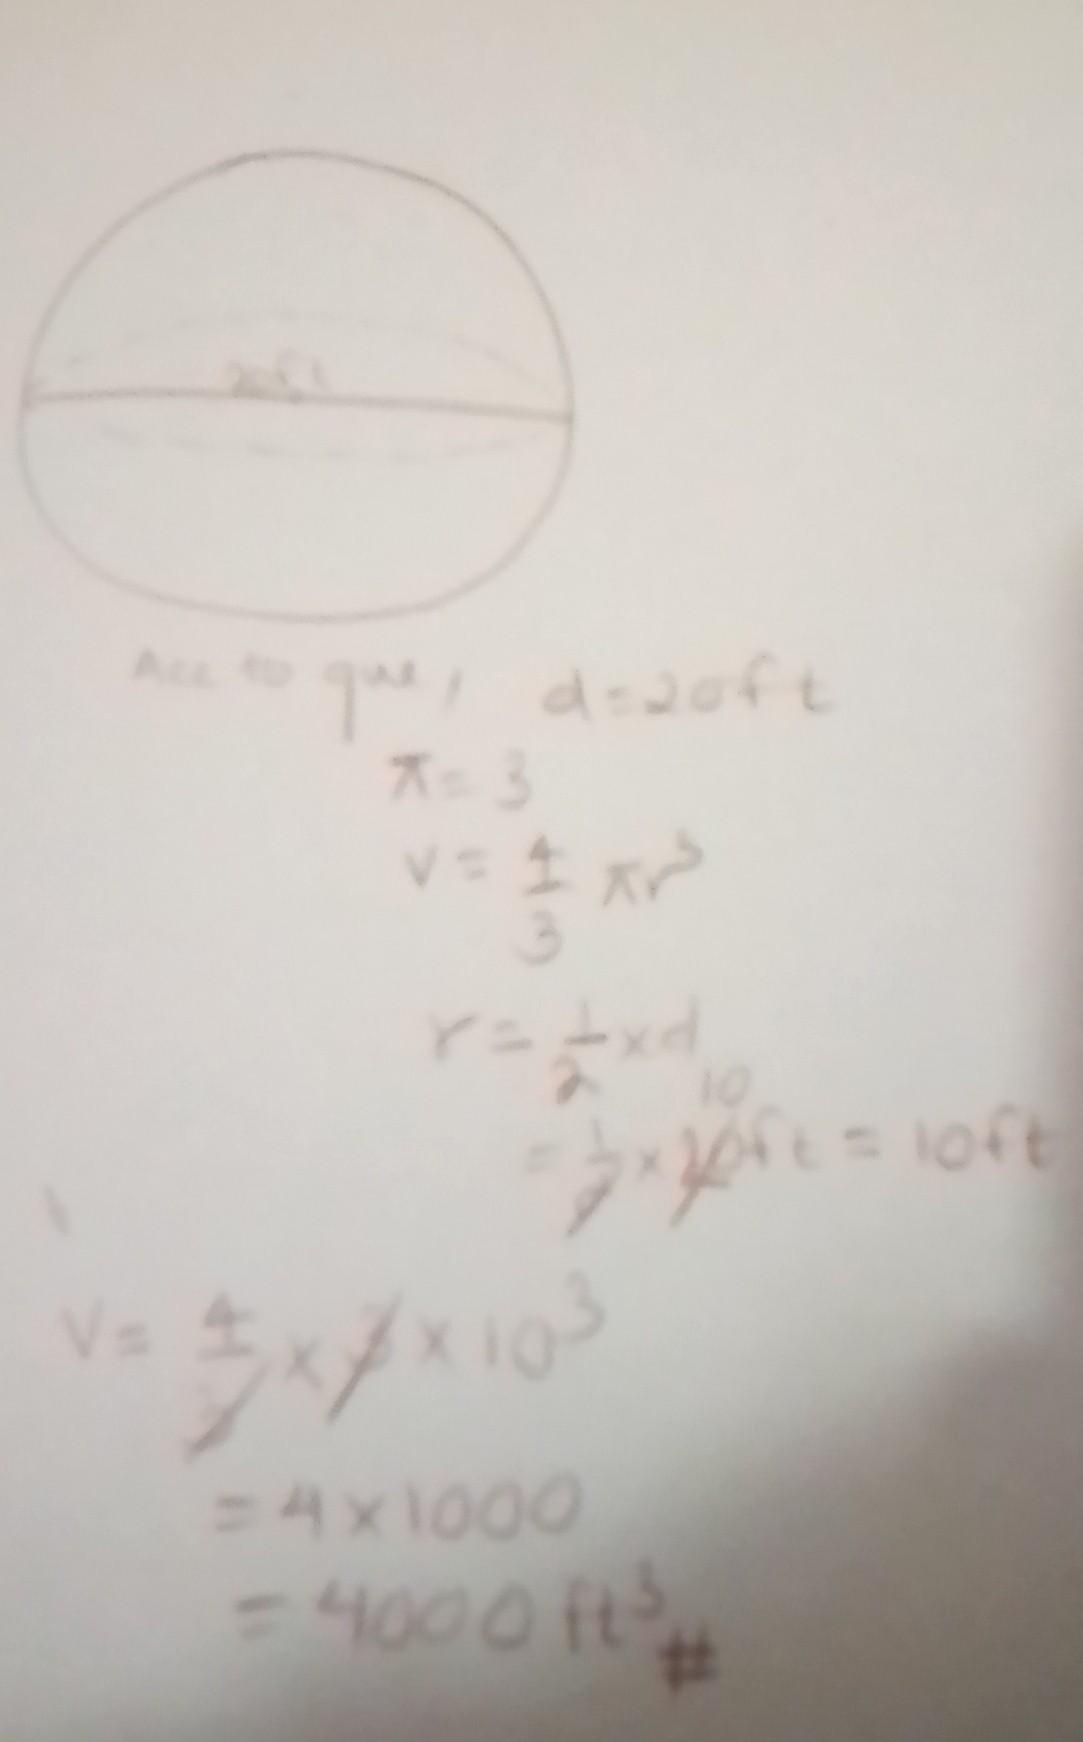 20ft
Acc to que, d=20ft
π= 3
V= 4/3 πr³
r= 1/2 xd
10
= 1/2 x 20ft = 10ft
V= 4/3 x 3 x 10³
= 4x1000
= 4000 ft³ #